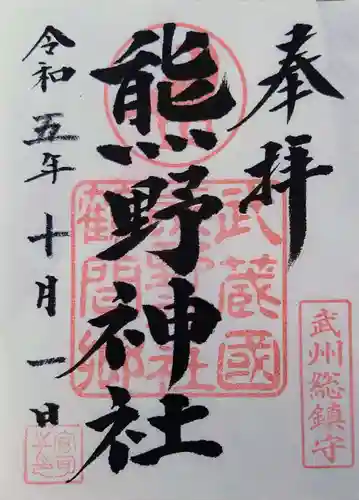 奉拝
武州総鎮守
熊野神社
武蔵國
鶴間郷
令和五年十月一日